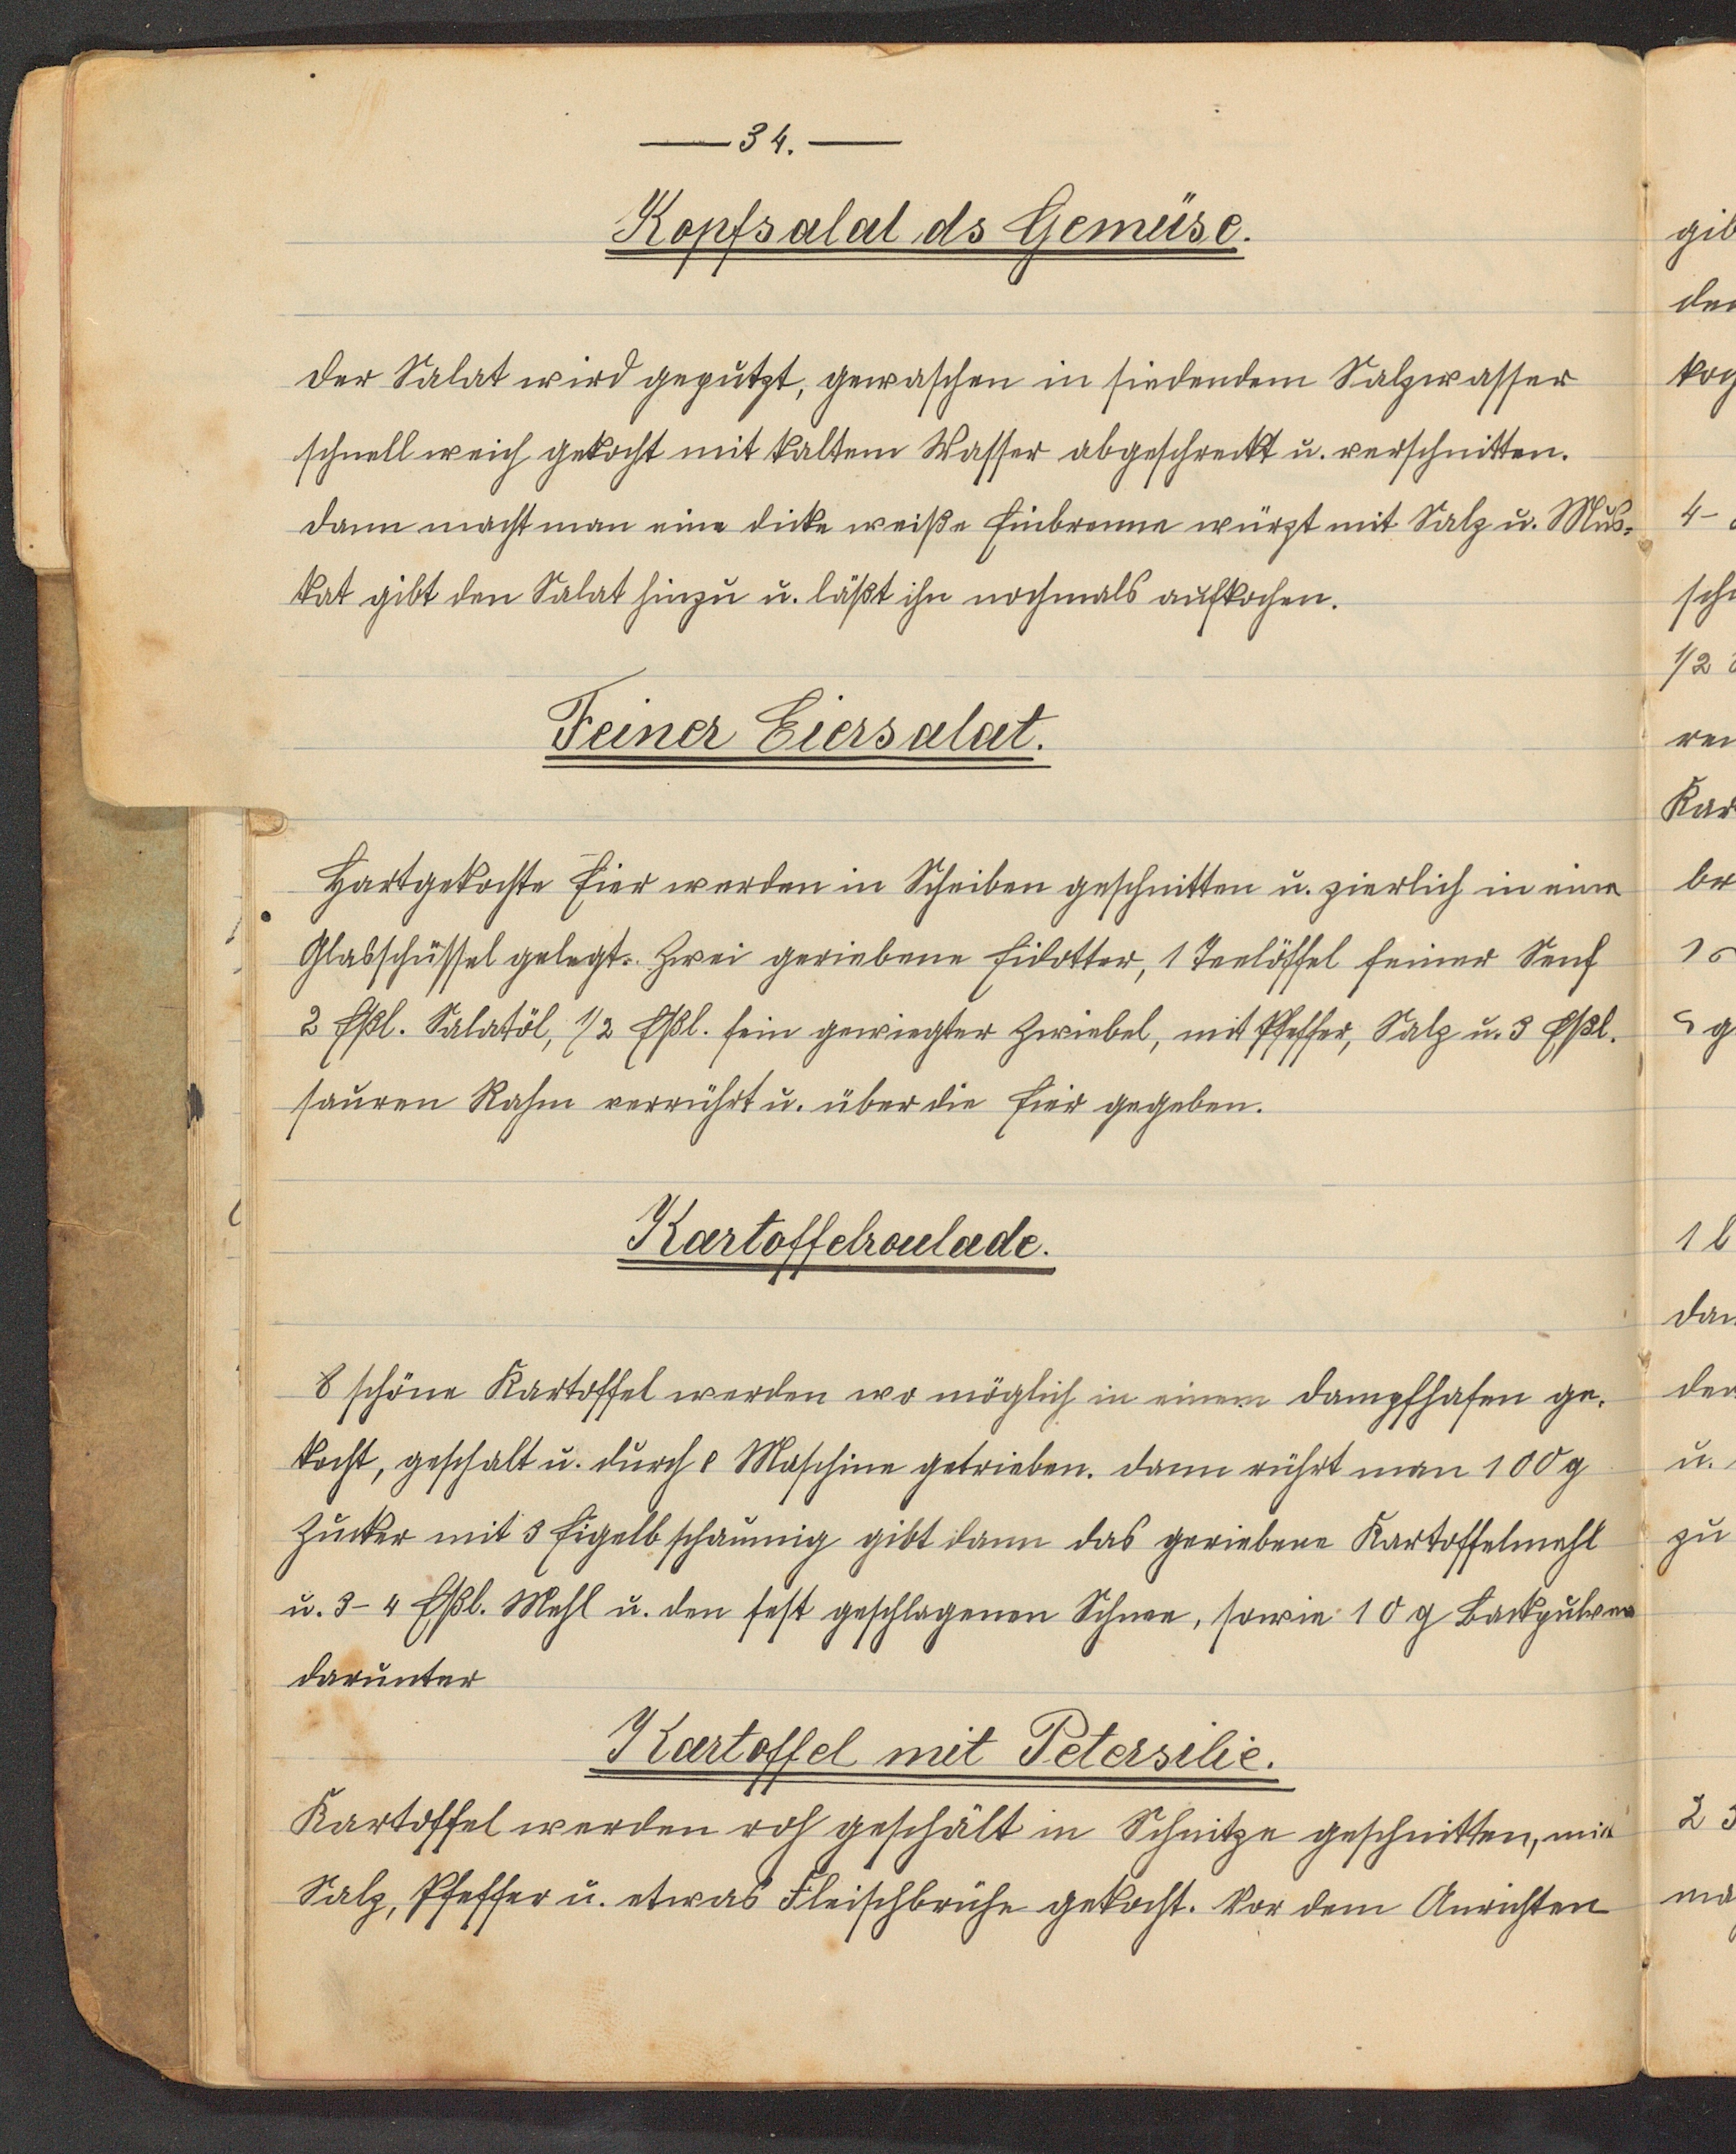 — 34. —
Kopfsalat ds Gemüse.
Der Salat wird geputzt, gewaschen in siedendem Salzwasser
schnell weich gekocht mit kaltem Wasser abgeschreckt u. verschnitten.
Dann macht man eine dicke weiße Einbrenne würzt mit Salz u. Mus-
kat gibt den Salat hinzu u. läßt ihn nochmals aufkochen.
Feiner Eiersalat.
Hartgekochte Eier werden in Scheiben geschnitten u. zierlich in eine
Glasschüssel gelegt. Zwei geriebene Eidotter, 1 Teelöffel feiner Senf
2 Eßl. Salatöl, 1/2 Eßl. fein gewiegter Zwiebel, mit Pfeffer, Salz u. 3 Eßl.
sauren Rahm verrührt u. über die Eier gegeben.
Kartoffelroulade.
8 schöne Kartoffel werden wo möglich in einem Dampfhafen ge-
kocht, geschalt u. durch e Maschine getrieben. Dann rührt man 100 g
Zucker mit 3 Eigelb schaumig gibt dann das geriebene Kartoffelmehl
u. 3-4 Eßl. Mehl u. den fest geschlagenen Schnee, sowie 10 g Backpulver
darunter
Kartoffel mit Petersilie.
Kartoffel werden roh geschält in Schnitze geschnitten, mit
Salz, Pfeffer u. etwas Fleischbrühe gekocht. Vor dem Anrichten